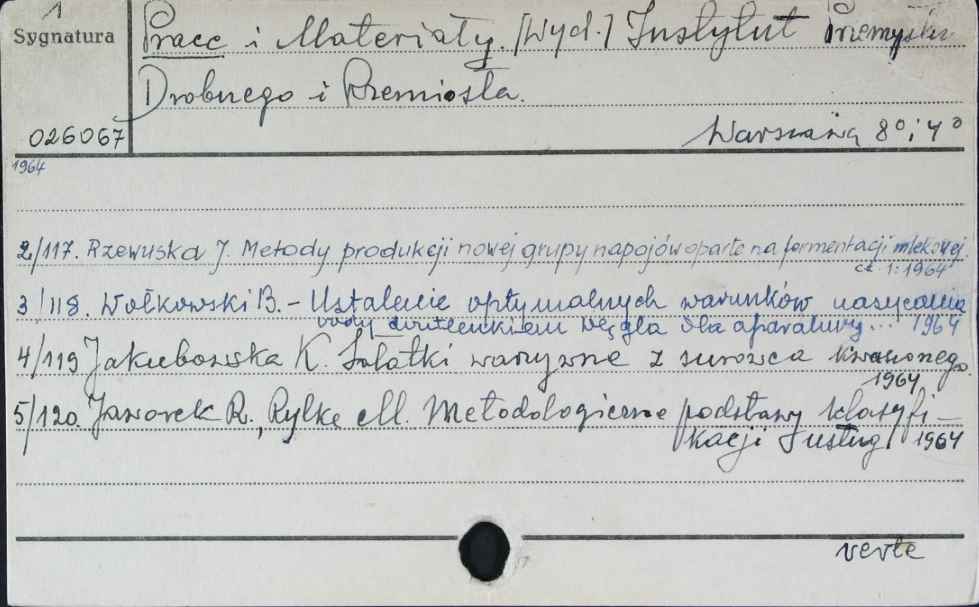 1
Sygnatura
Prace i Materiały. [Wyd.] Instytut Przemysłu
Drobnego i Rzemiosła.
026067
Warszawa 8°; 4°
1964
2/117. Rzewuska J. Metody produkcji nowej grupy napojów oparte na fermentacji mlekowej.
cz. 1: 1964
3/118. Wołkowski B. - Ustalenie optymalnych warunków nasycania
wody dwutlenkiem węgla dla aparatury... 1964
4/119 Jakubowska K. Sałatki warzywne z surowca kwaszonego.
1964
5/120. Jaworek R., Rylke M. Metodologiczne podstawy klasyfi-
kacji usług 1964
verte